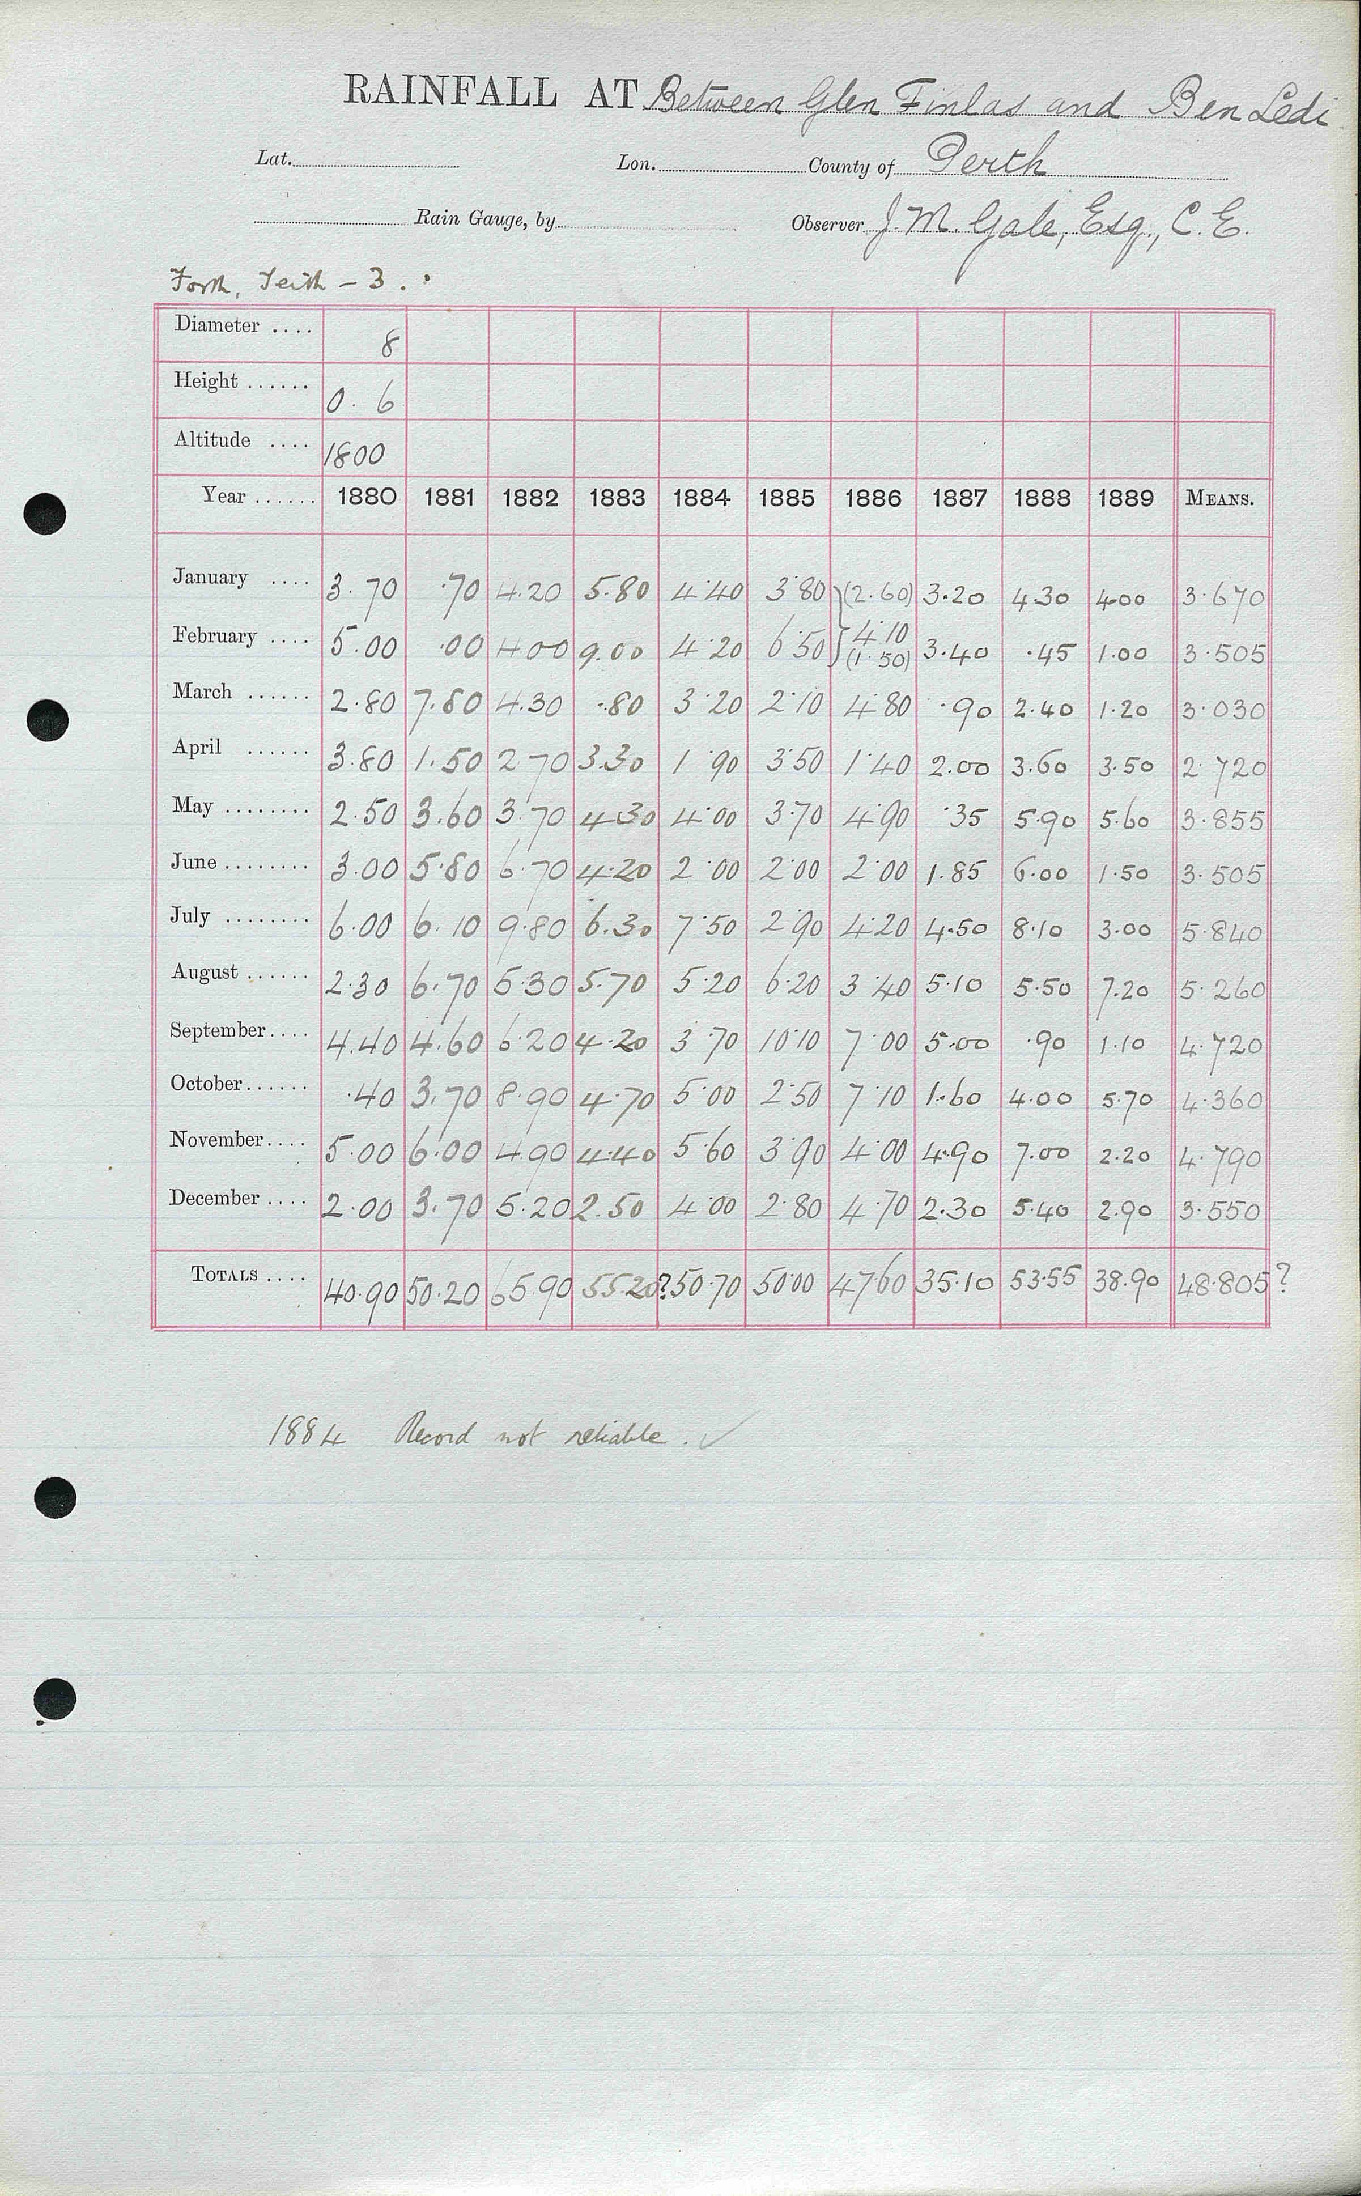 RAINFALL AT Between Glen Finlas and Ben Ledi
Lat. Lon. County of Perth
Rain Gauge, by Observer J. M. Gale, Esq., C.E.
Forth, Teith - 3.
Diameter .... 8
Height ...... 0. 6
Altitude .... 1800
Year ...... 1880 1881 1882 1883 1884 1885 1886 1887 1888 1889 MEANS.
January .... 3.70 .70 4.20 5.80 4.40 3.80 (2.60) 3.20 4.30 4.00 3.670
February .... 5.00 .00 4.00 9.00 4.20 6.50 4.10 (1.50) 3.40 .45 1.00 3.505
March ...... 2.80 7.80 4.30 .80 3.20 2.10 4.80 .90 2.40 1.20 3.030
April ...... 3.80 1.50 2.70 3.30 1.90 3.50 1.40 2.00 3.60 3.50 2.720
May ........ 2.50 3.60 3.70 4.30 4.00 3.70 4.90 .35 5.90 5.60 3.855
June ........ 3.00 5.80 6.70 4.20 2.00 2.00 2.00 1.85 6.00 1.50 3.505
July ........ 6.00 6.10 9.80 6.30 7.50 2.90 4.20 4.50 8.10 3.00 5.840
August ...... 2.30 6.70 5.30 5.70 5.20 6.20 3.40 5.10 5.50 7.20 5.260
September.... 4.40 4.60 6.20 4.20 3.70 10.10 7.00 5.00 .90 1.10 4.720
October...... .40 3.70 8.90 4.70 5.00 2.50 7.10 1.60 4.00 5.70 4.360
November.... 5.00 6.00 4.90 4.40 5.60 3.90 4.00 4.90 7.00 2.20 4.790
December .... 2.00 3.70 5.20 2.50 4.00 2.80 4.70 2.30 5.40 2.90 3.550
TOTALS .... 40.90 50.20 65.90 55.20 ?50.70 50.00 47.60 35.10 53.55 38.90 48.805?
1884 Record not reliable.